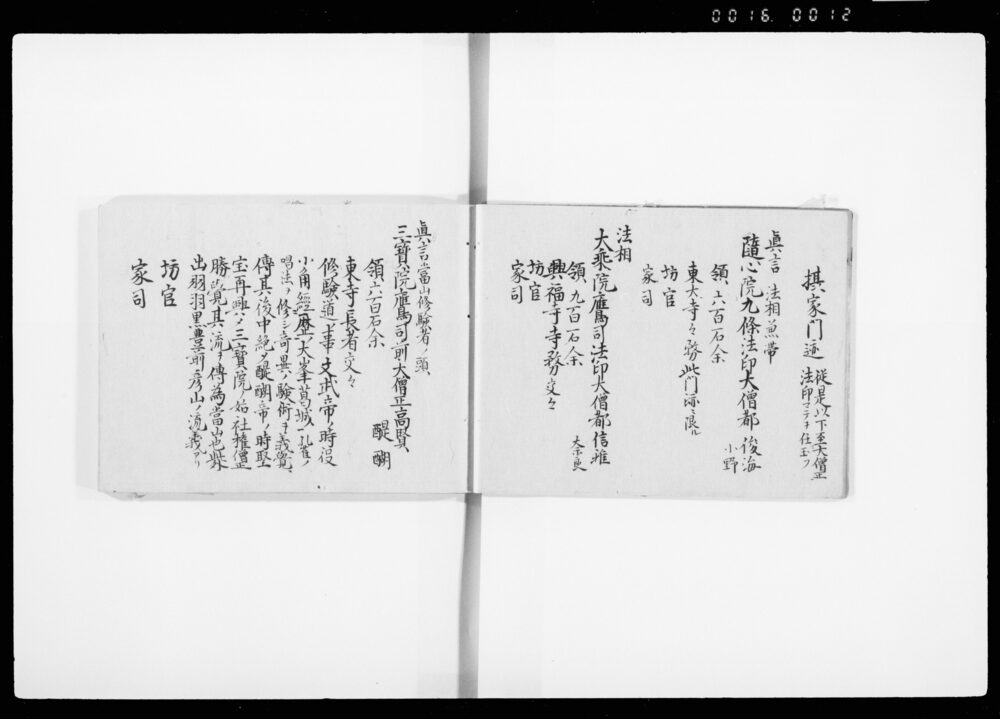 0016 0012
摂家門迹 従是以下至大僧正
法印マテヲ任玉フ
眞言 法相兼帶
隨心院九條法印大僧都 俊海
小野
領六百石余
東大寺々務此門迹ニ限ル
坊官
家司
法相
大乘院鷹司法印大僧都信雅
大奈良
領九百石余
興福寺寺務交々
坊官
家司
眞言當山修驗者ノ頭
三寶院鷹司前大僧正高賢
醍醐
領六百石余
東寺長者交々
修驗道ハ文武帝ノ時役
小角經歴大峯葛城孔雀ノ
唱法ヲ修シ奇異ノ驗術ヲ義覺
傳其後中絶ス醍醐帝ノ時聖
宝再興ノ三寶院ノ始社權僧正
勝覺其流ヲ傳為當山也
出羽羽黒豊前彦山ノ流義アリ
坊官
家司